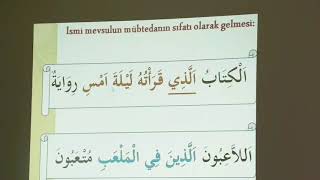 İsmi mevsulun mübtedanın sıfatı olarak gelmesi:
اَلْكِتَابُ الَّذِي قَرَأْتُهُ لَيْلَةَ اَمْسِ رِوَايَةٌ
اَللاَّعِبُونَ الَّذِينَ فِي الْمَلْعَبِ مُتْعَبُونَ